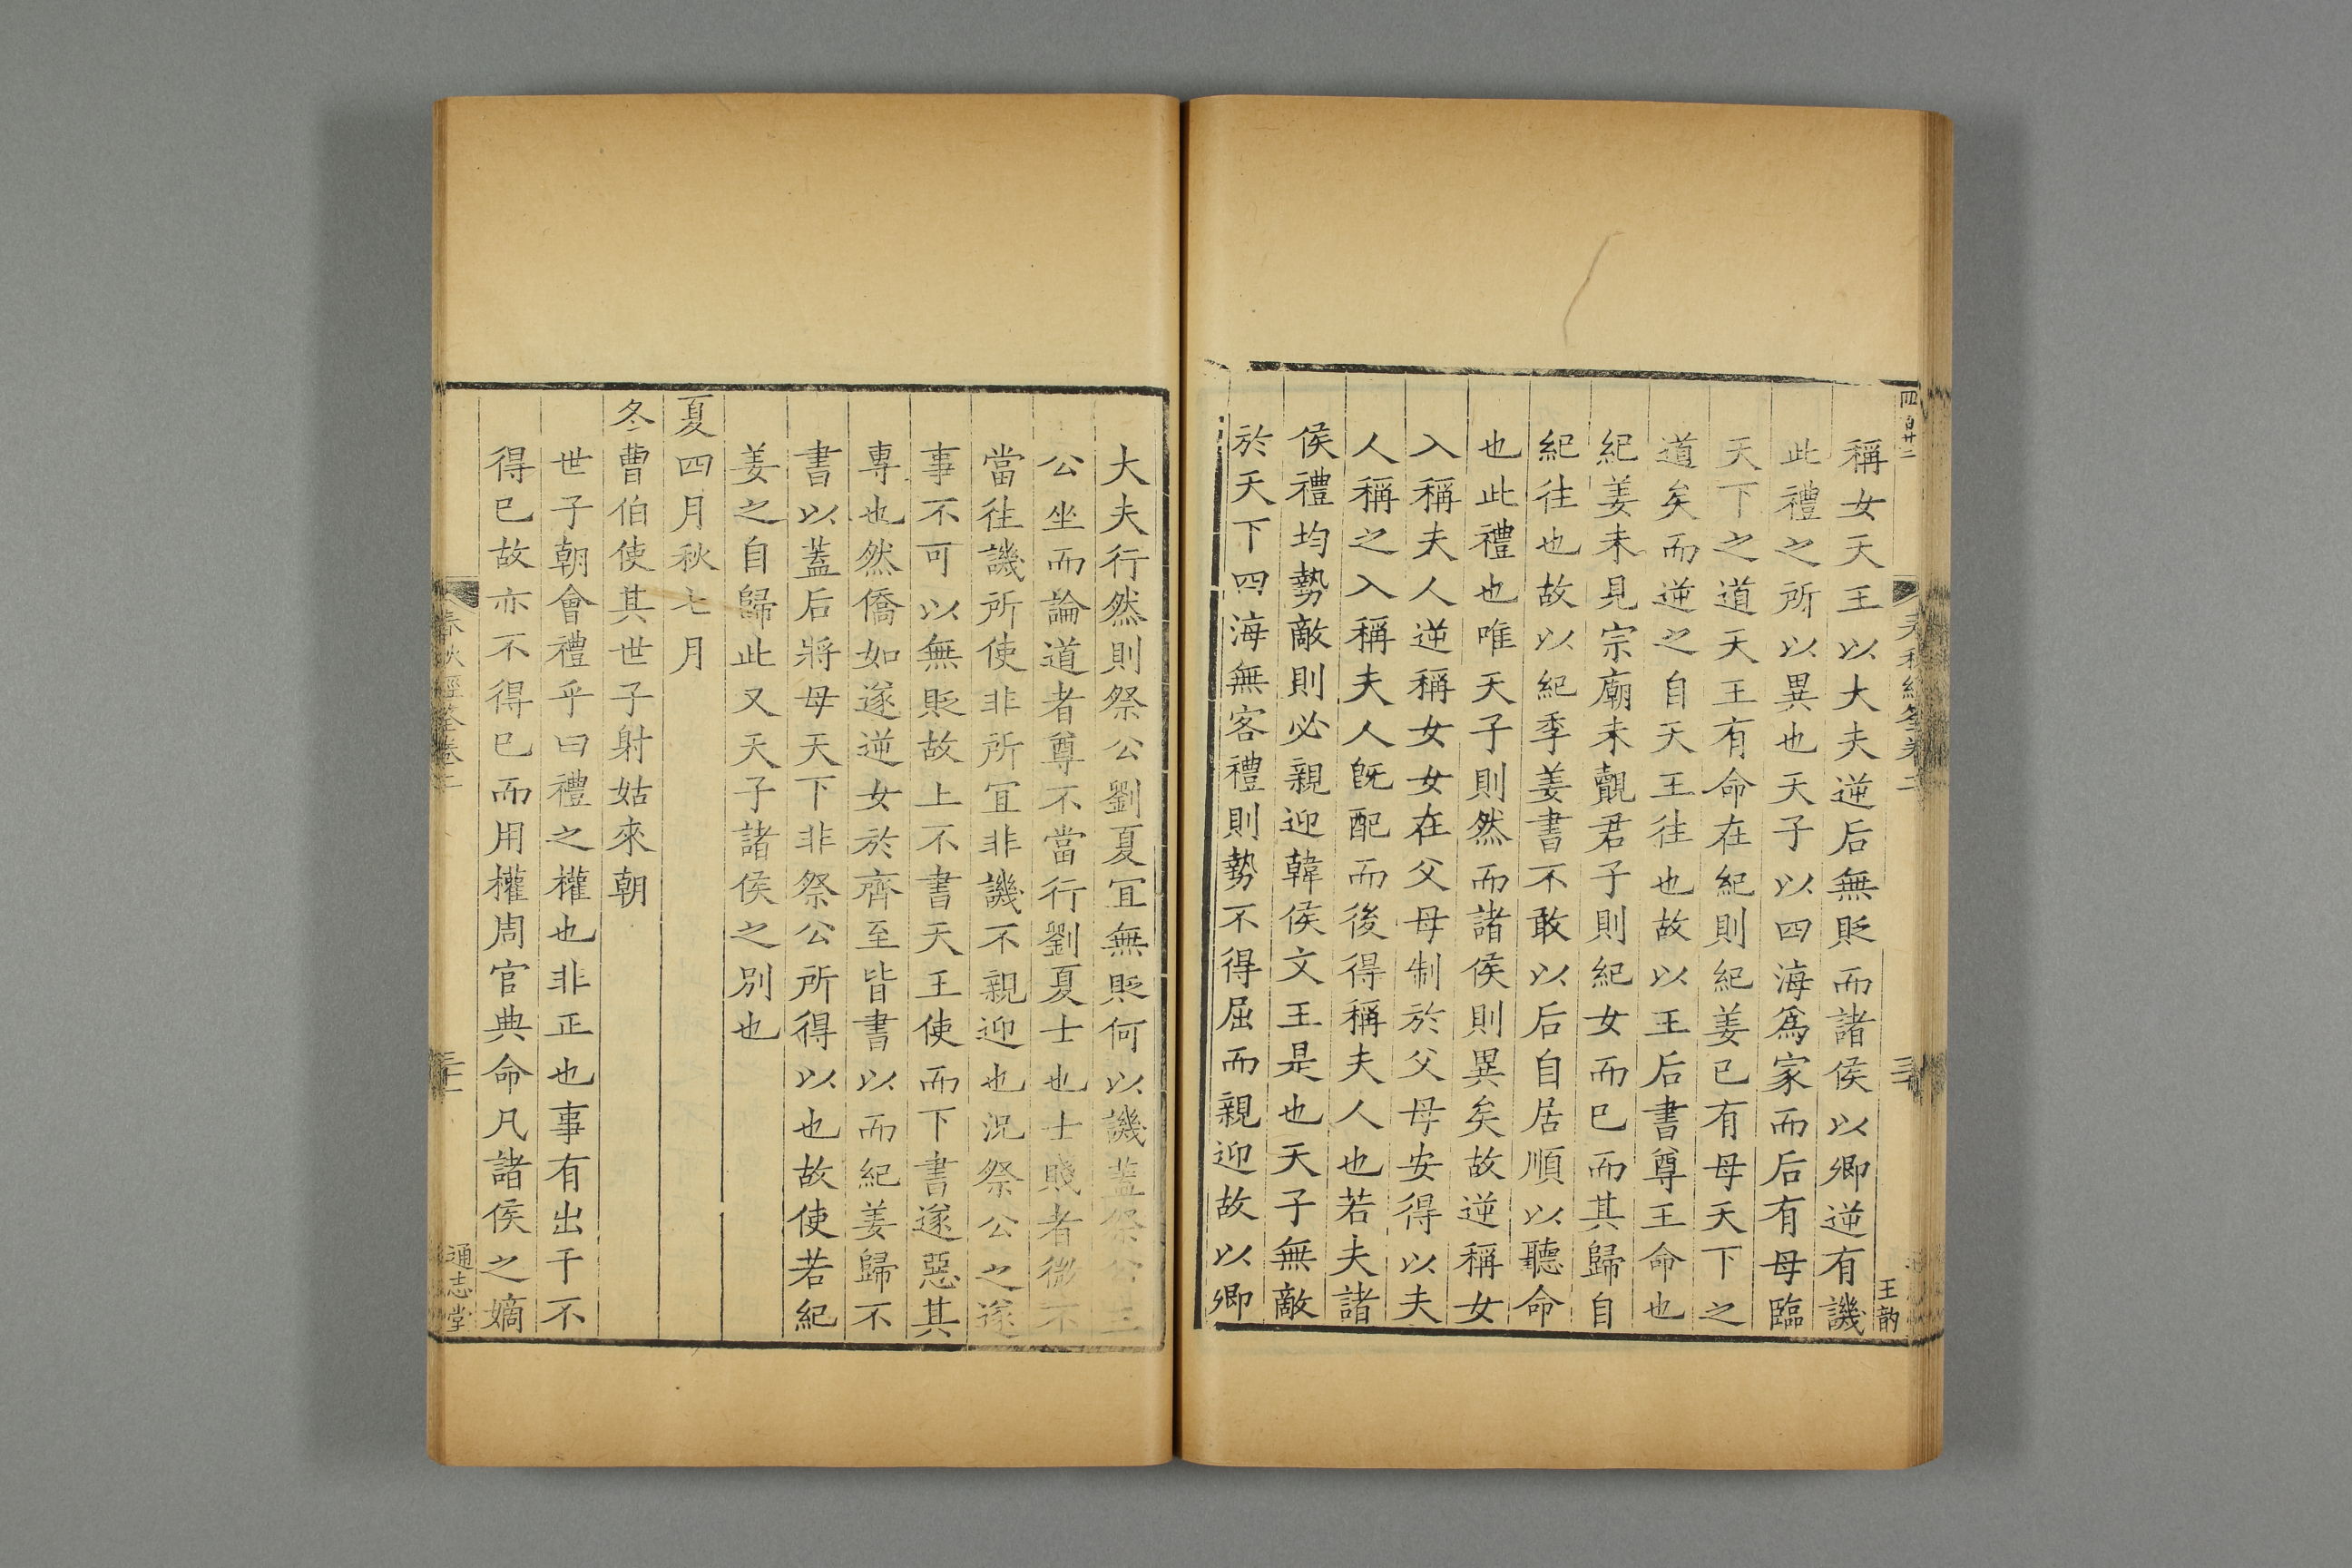 四百廿二
稱女天王以大夫逆后無貶而諸侯以卿逆有譏
此禮之所以異也天子以四海爲家而后有母臨
天下之道天王有命在紀則紀姜已有母天下之
道矣而逆之自天王往也故以王后書尊王命也
紀姜未見宗廟未覿君子則紀女而已而其歸自
紀往也故以紀季姜書不敢以后自居順以聽命
也此禮也唯天子則然而諸侯則異矣故逆稱女
入稱夫人逆稱女女在父母制於父母安得以夫
人稱之入稱夫人旣配而後得稱夫人也若夫諸
侯禮均勢敵則必親迎韓侯文王是也天子無敵
於天下四海無客禮則勢不得屈而親迎故以卿
王韵
大夫行然則祭公劉夏宜無貶何以譏蓋祭公三
公坐而論道者尊不當行劉夏士也士賤者微不
當往譏所使非所宜非譏不親迎也況祭公之遂
事不可以無貶故上不書天王使而下書遂惡其
專也然僑如遂逆女於齊至皆書以而紀姜歸不
書以蓋后將母天下非祭公所得以也故使若紀
姜之自歸此又天子諸侯之別也
夏四月秋七月
冬曹伯使其世子射姑來朝
世子朝會禮乎曰禮之權也非正也事有出于不
得已故亦不得已而用權周官典命凡諸侯之嫡
春秋經筌卷二
通志堂